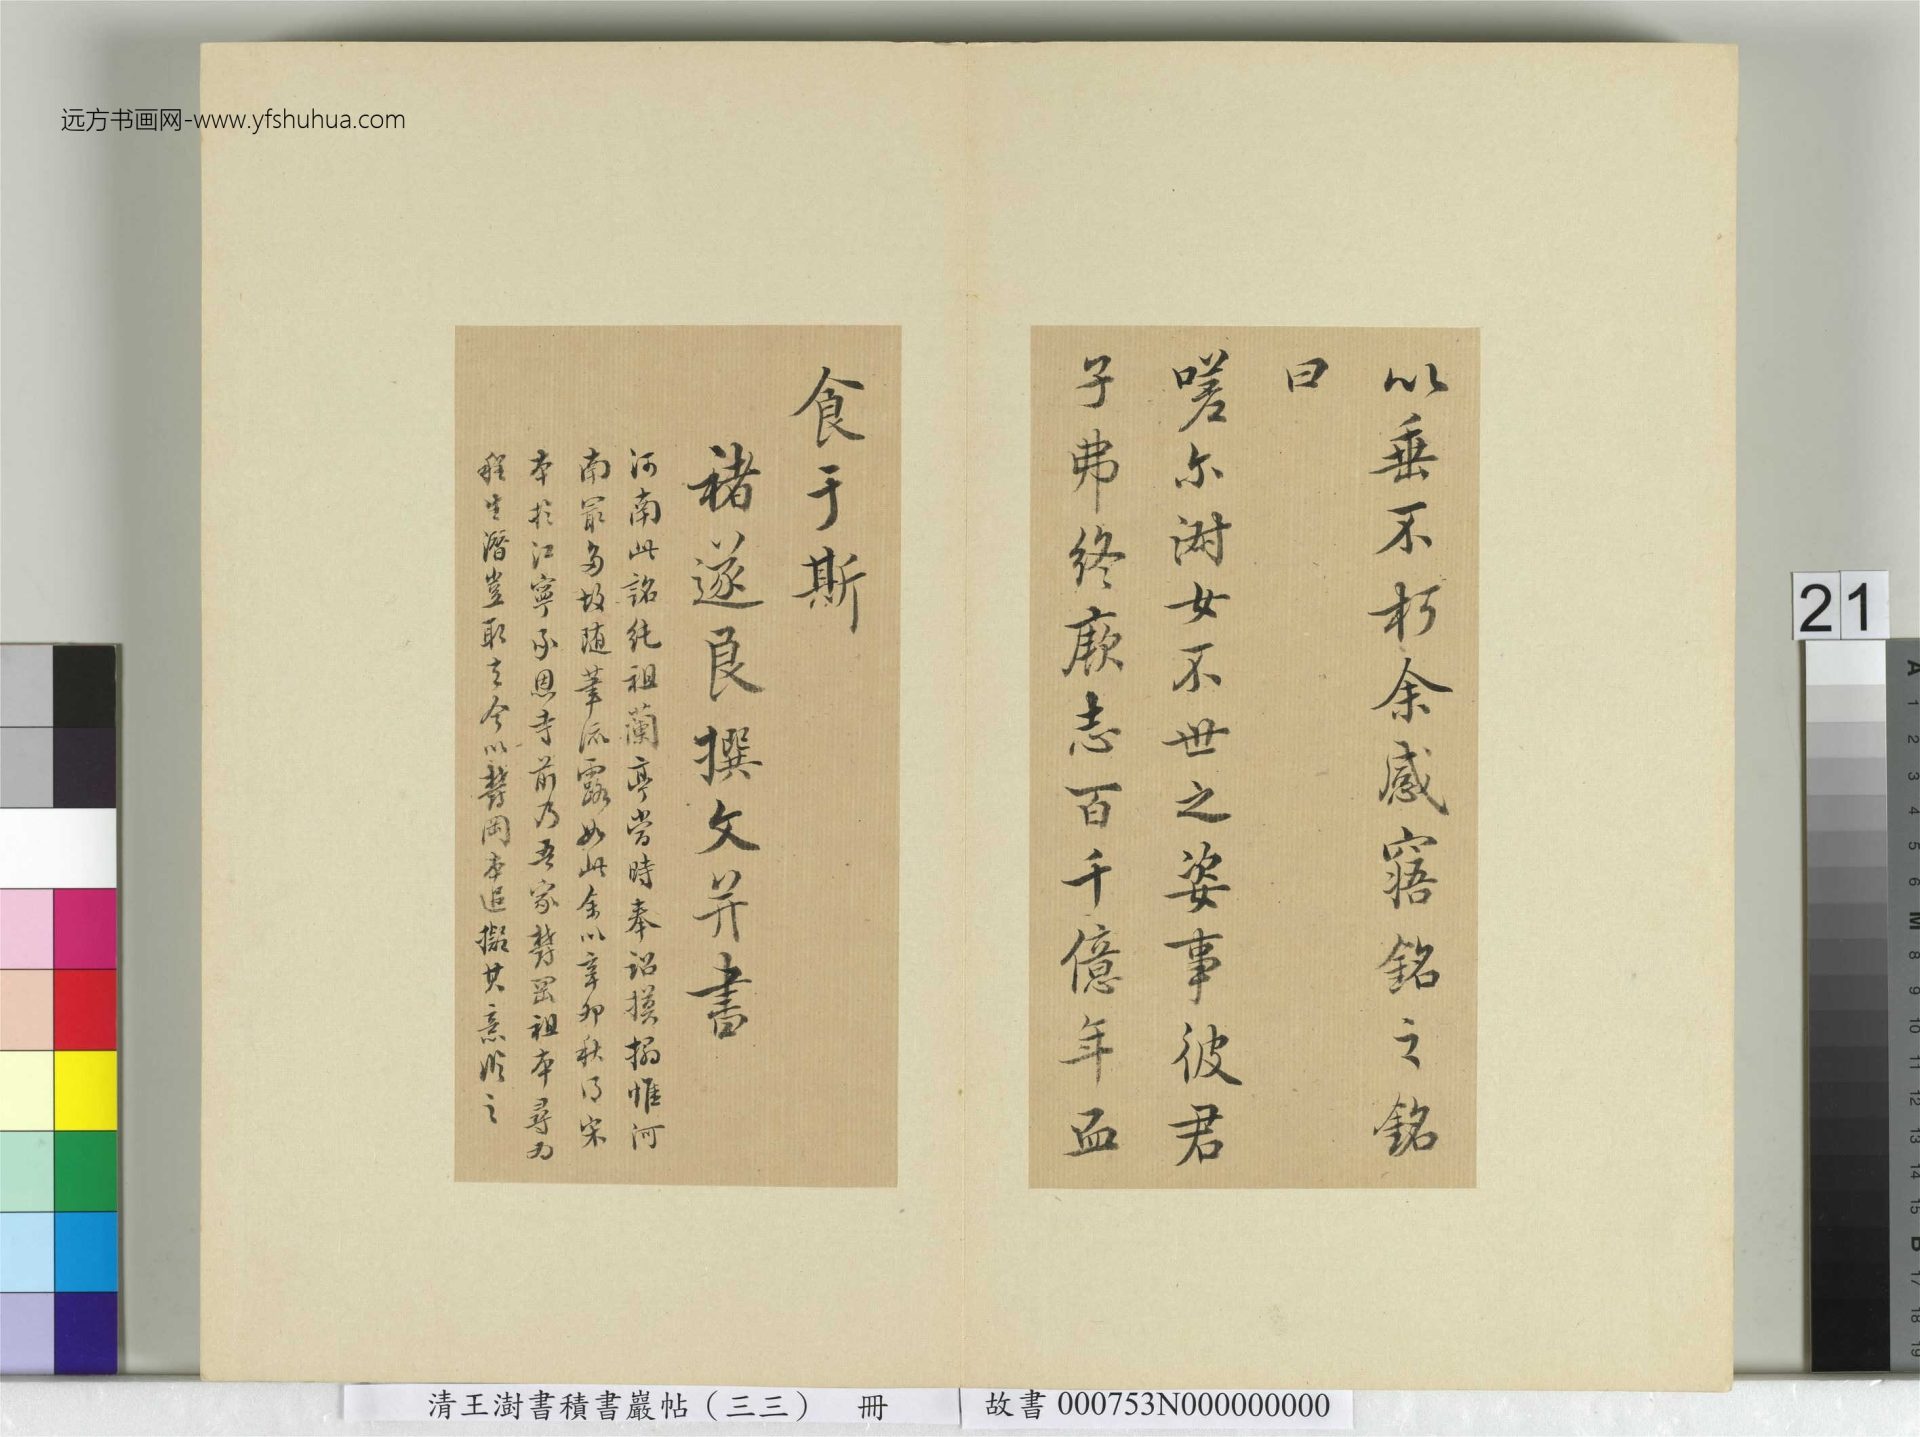 远方书画网-www.yfshuhua.com
以垂不朽余感寤銘之銘
曰
嗟尔澍女不世之姿事彼君
子弗終厥志百千億年血
食于斯
褚遂良撰文并書
河南此銘純祖蘭亭當時奉詔摸搨惟河
南最多故随筆流露如此余以辛卯秋得宋
本於江寧承恩寺前乃吾家罸罡祖本尋为
程生潛豈取去今以罸岡本追擬其意臨之
21
清王澍書積書巖帖（三三） 冊
故書 000753N000000000